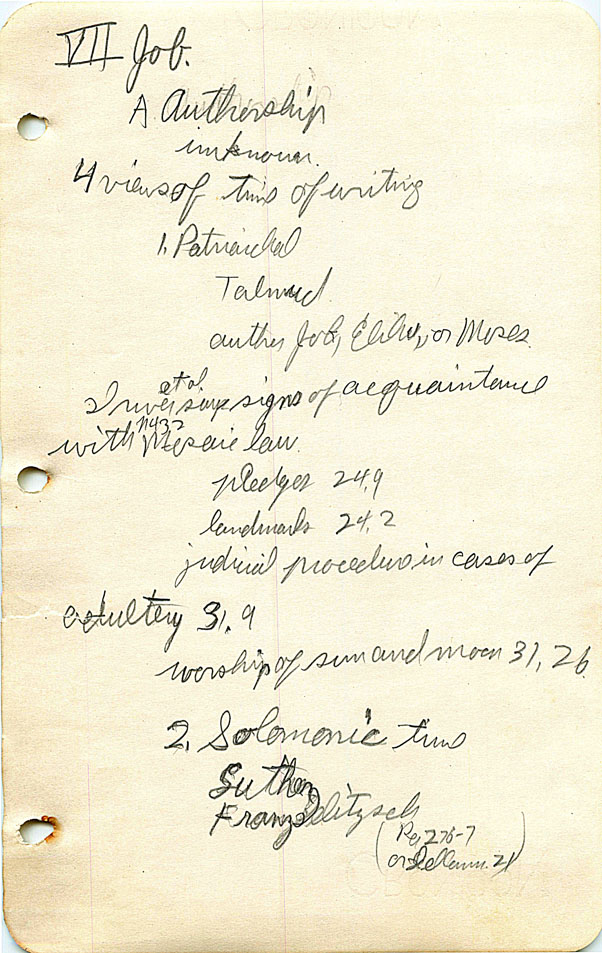 VII Job.
A Authorship
unknown.
4 views of time of writing
1. Patriarchal
Talmud
author Job, Elihu, or Moses.
et al
Driver says signs of acquaintance
with Mosaic law.
pledges 24,9
landmarks 24,2
judicial procedure in cases of
adultery 31,9
worship of sun and moon 31,26
2. Solomonic time
Luther
Franz Delitzsch
276-7